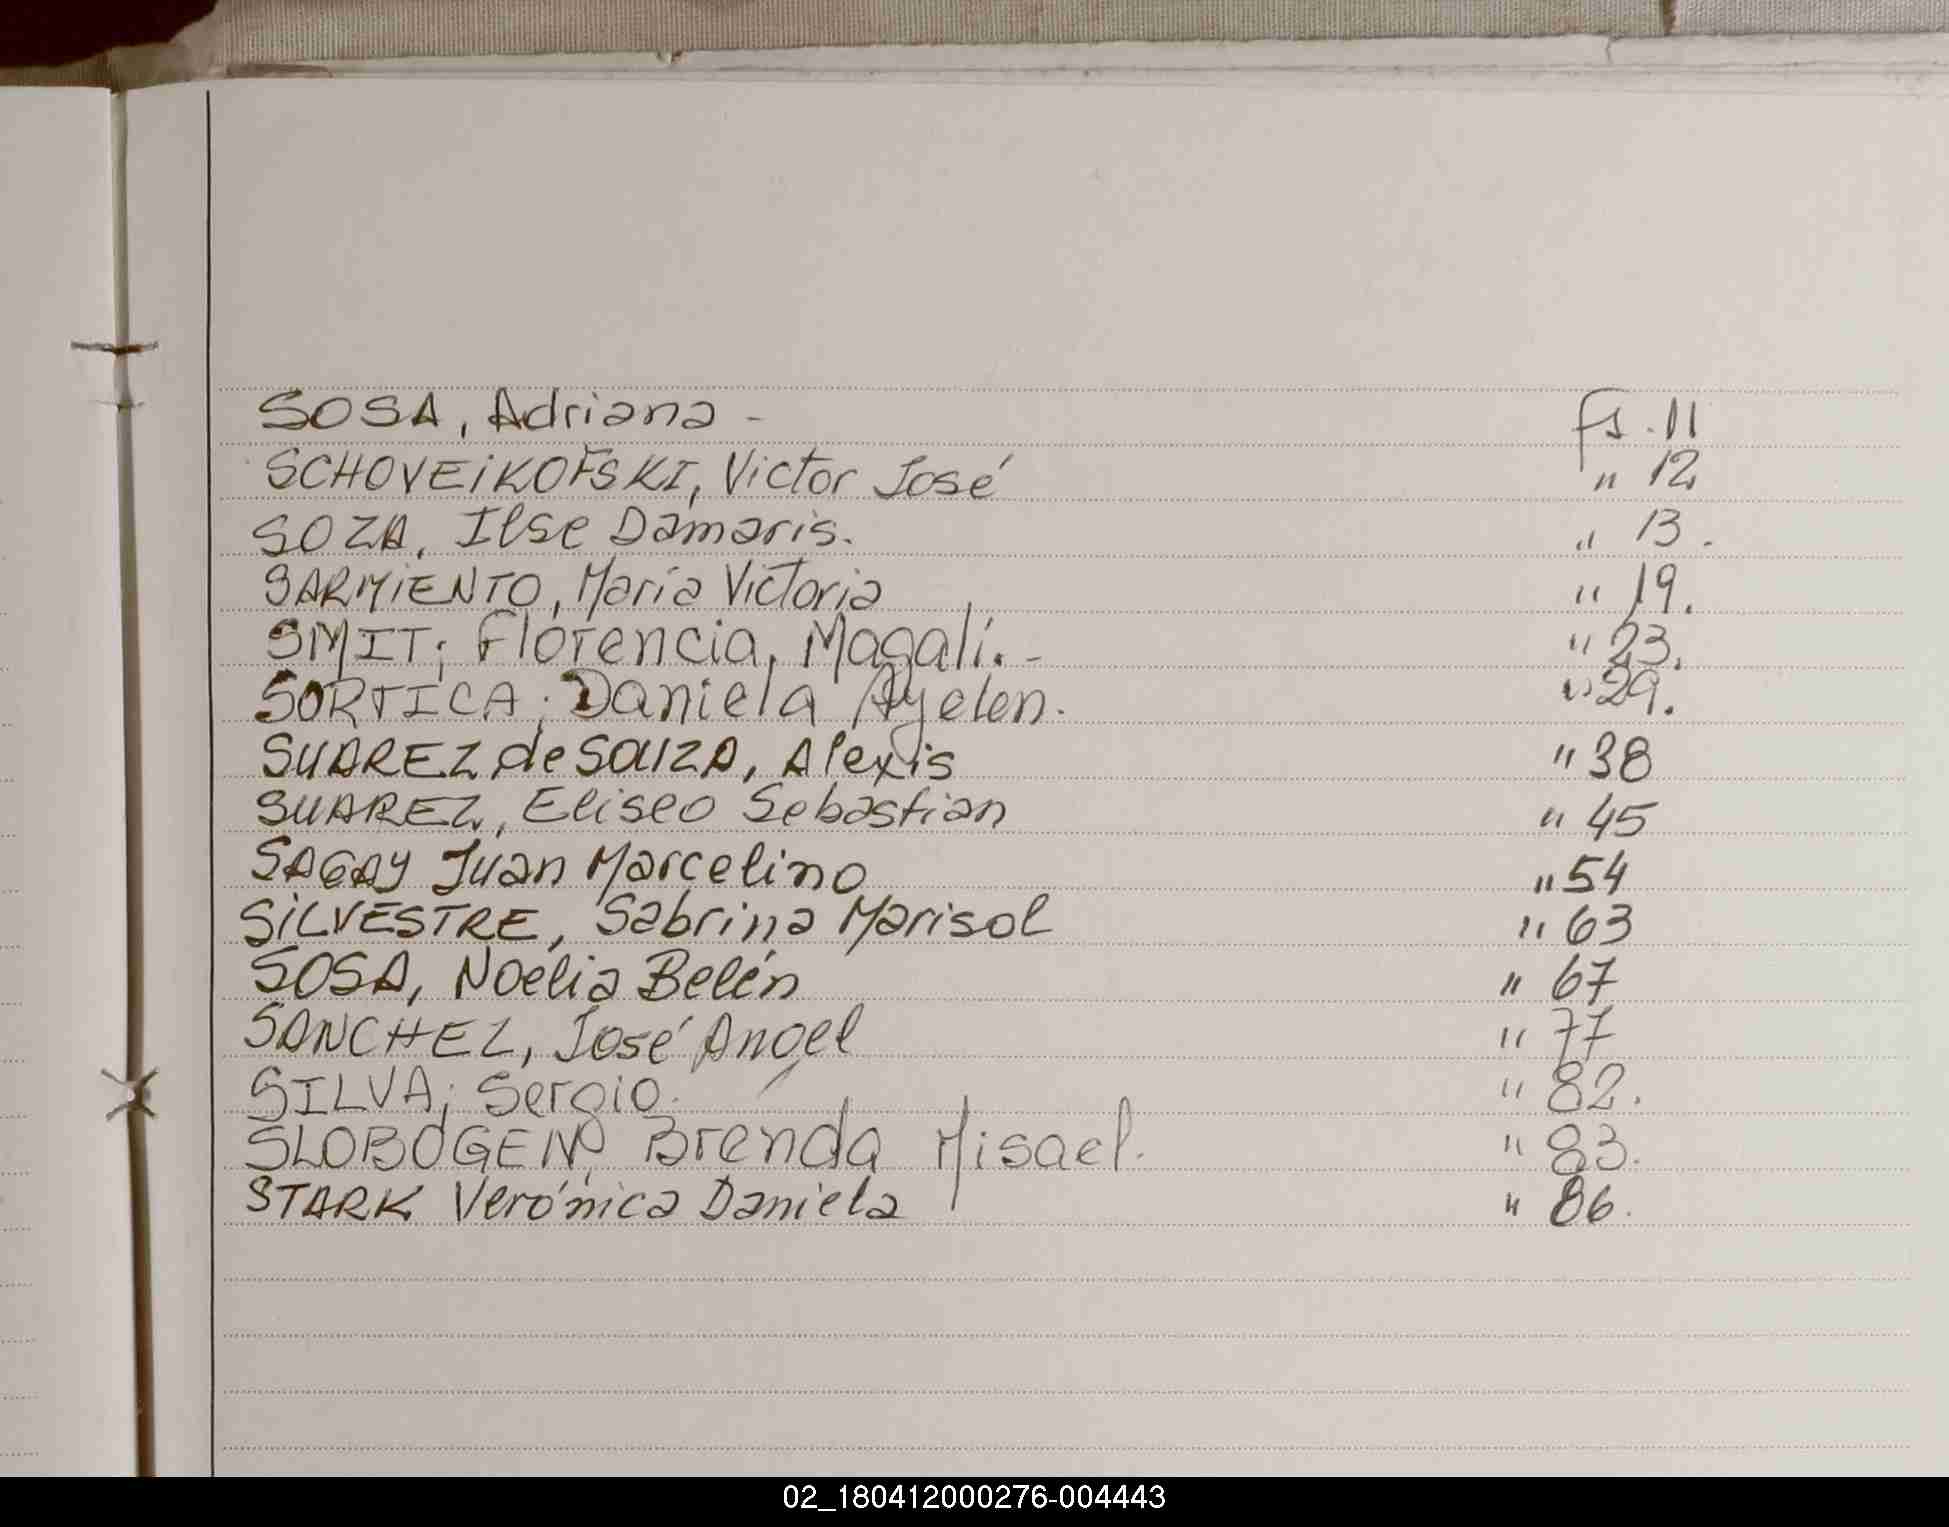 SOSA, Adriana - fs. 11
SCHOVEIKOFSKI, Victor José " 12
SOZA, Ilse Damaris. " 13.
SARMIENTO, María Victoria " 19.
SMIT; Florencia, Magalí. - " 23.
SORTICA; Daniela Ayelen. " 29.
SUAREZ de SOUZA, Alexis " 38
SUAREZ, Eliseo Sebastian " 45
SAGAY Juan Marcelino " 54
SILVESTRE, Sabrina Marisol " 63
SOSA, Noelia Belén " 67
SANCHEZ, José Angel " 77
SILVA; Sergio. " 82.
Brenda Misael. " 83.
STARK Verónica Daniela " 86.
02_180412000276-004443